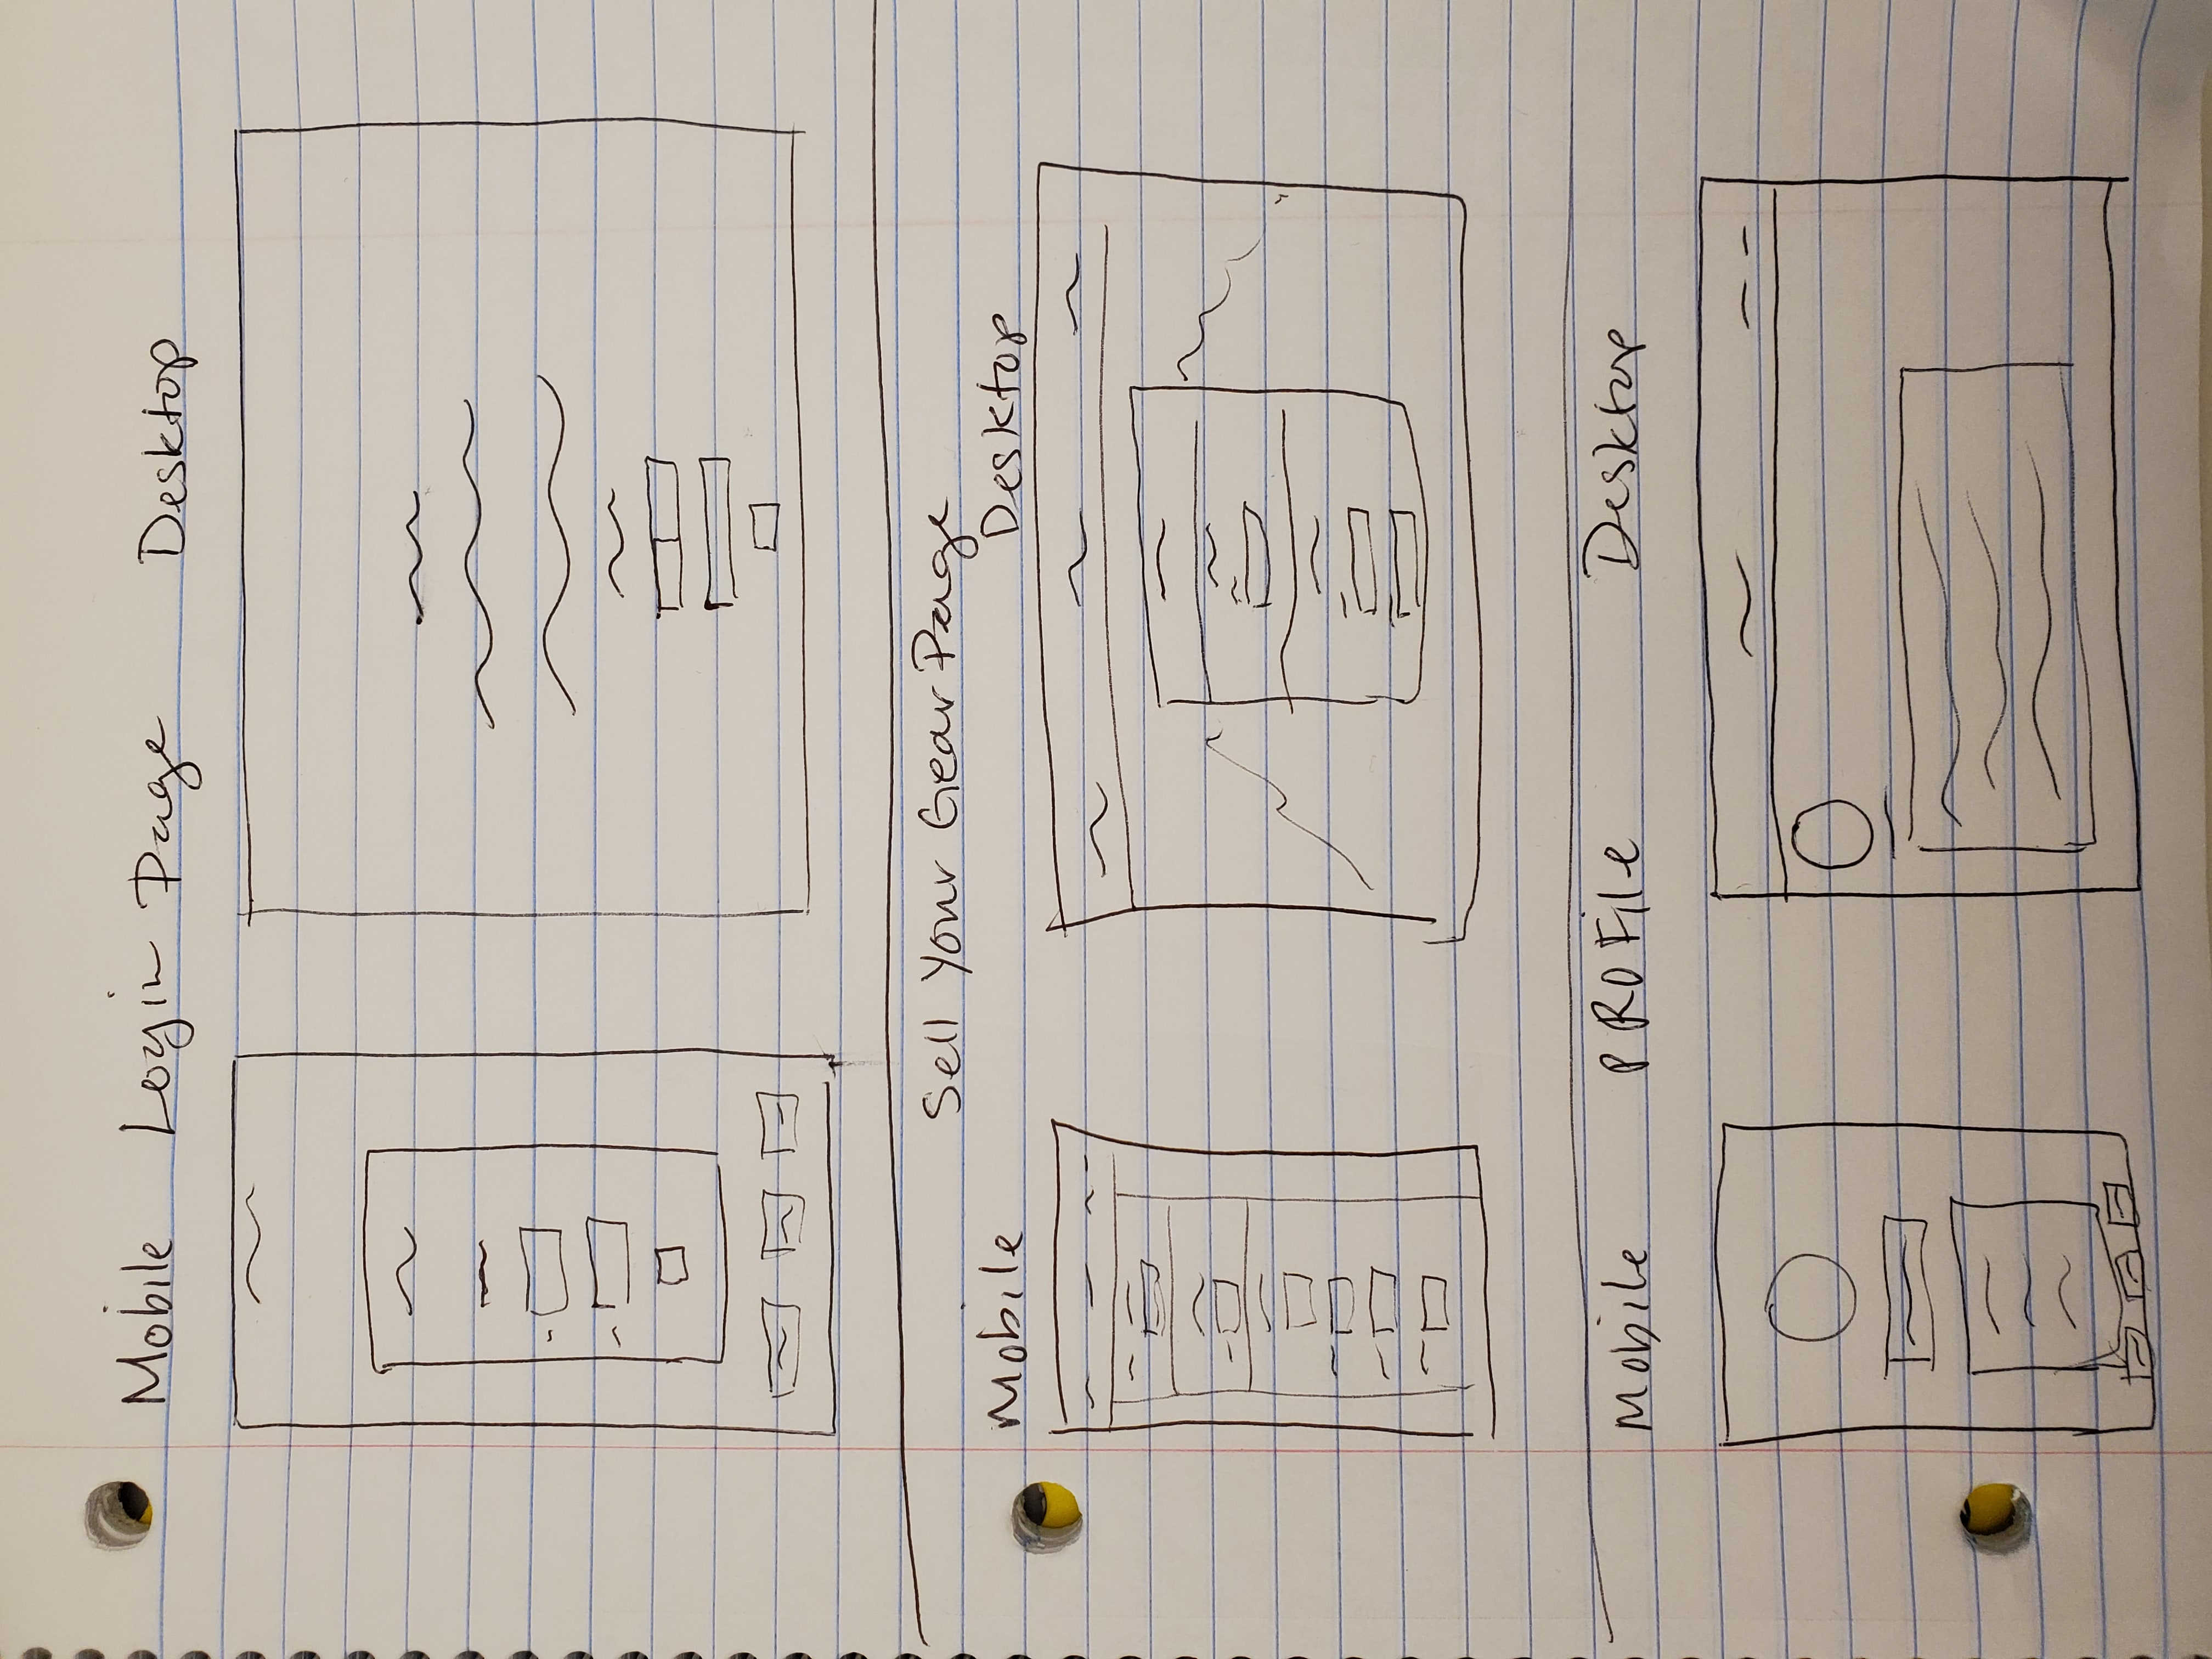 Mobile Login Page Desktop
Sell Your Gear Page
Mobile Desktop
Mobile PROFile Desktop